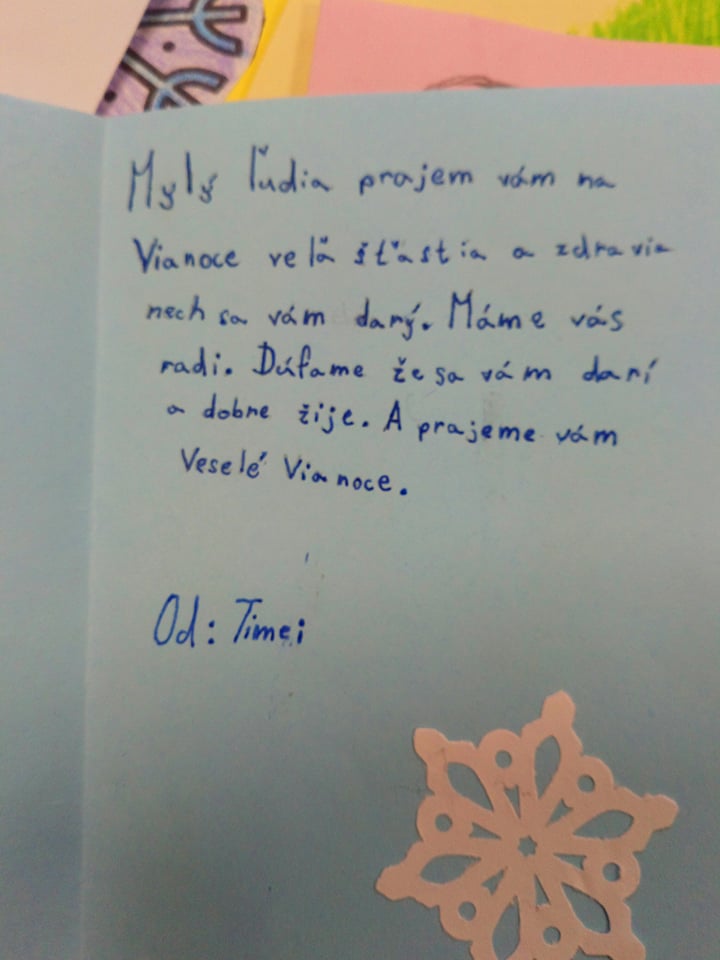 Mylý ľudia prajem vám na
Vianoce veľa šťastia a zdravia
nech sa vám darý. Máme vás
radi. Dúfame že sa vám darí
a dobre žije. A prajeme vám
Veselé Vianoce.
Od: Timei